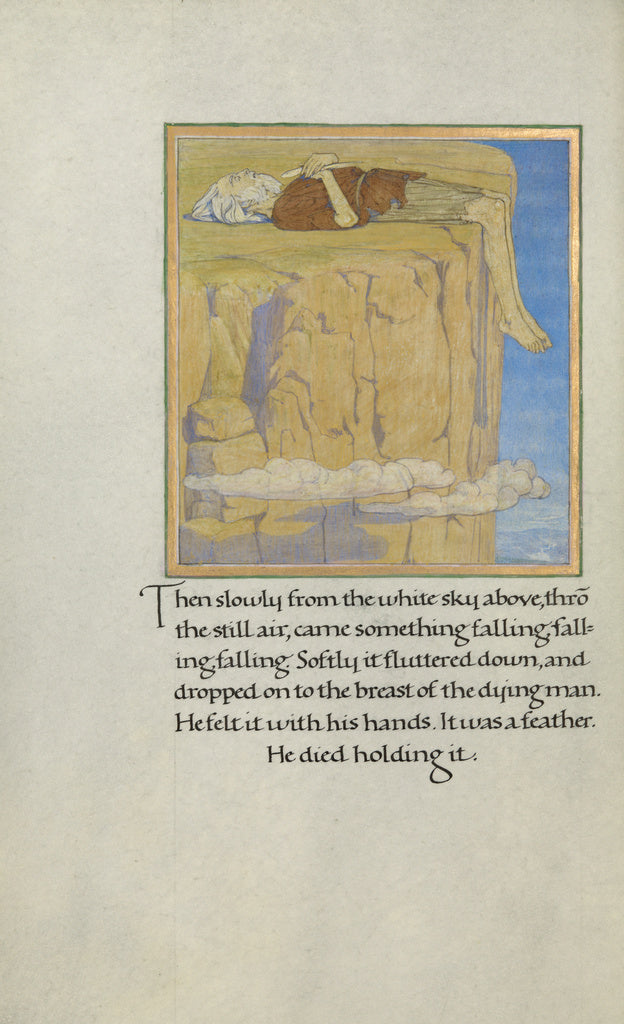 Then slowly from the white sky above, thrō
the still air, came something falling, fall=
ing, falling. Softly it fluttered down, and
dropped on to the breast of the dying man.
He felt it with his hands. It was a feather.
He died holding it.